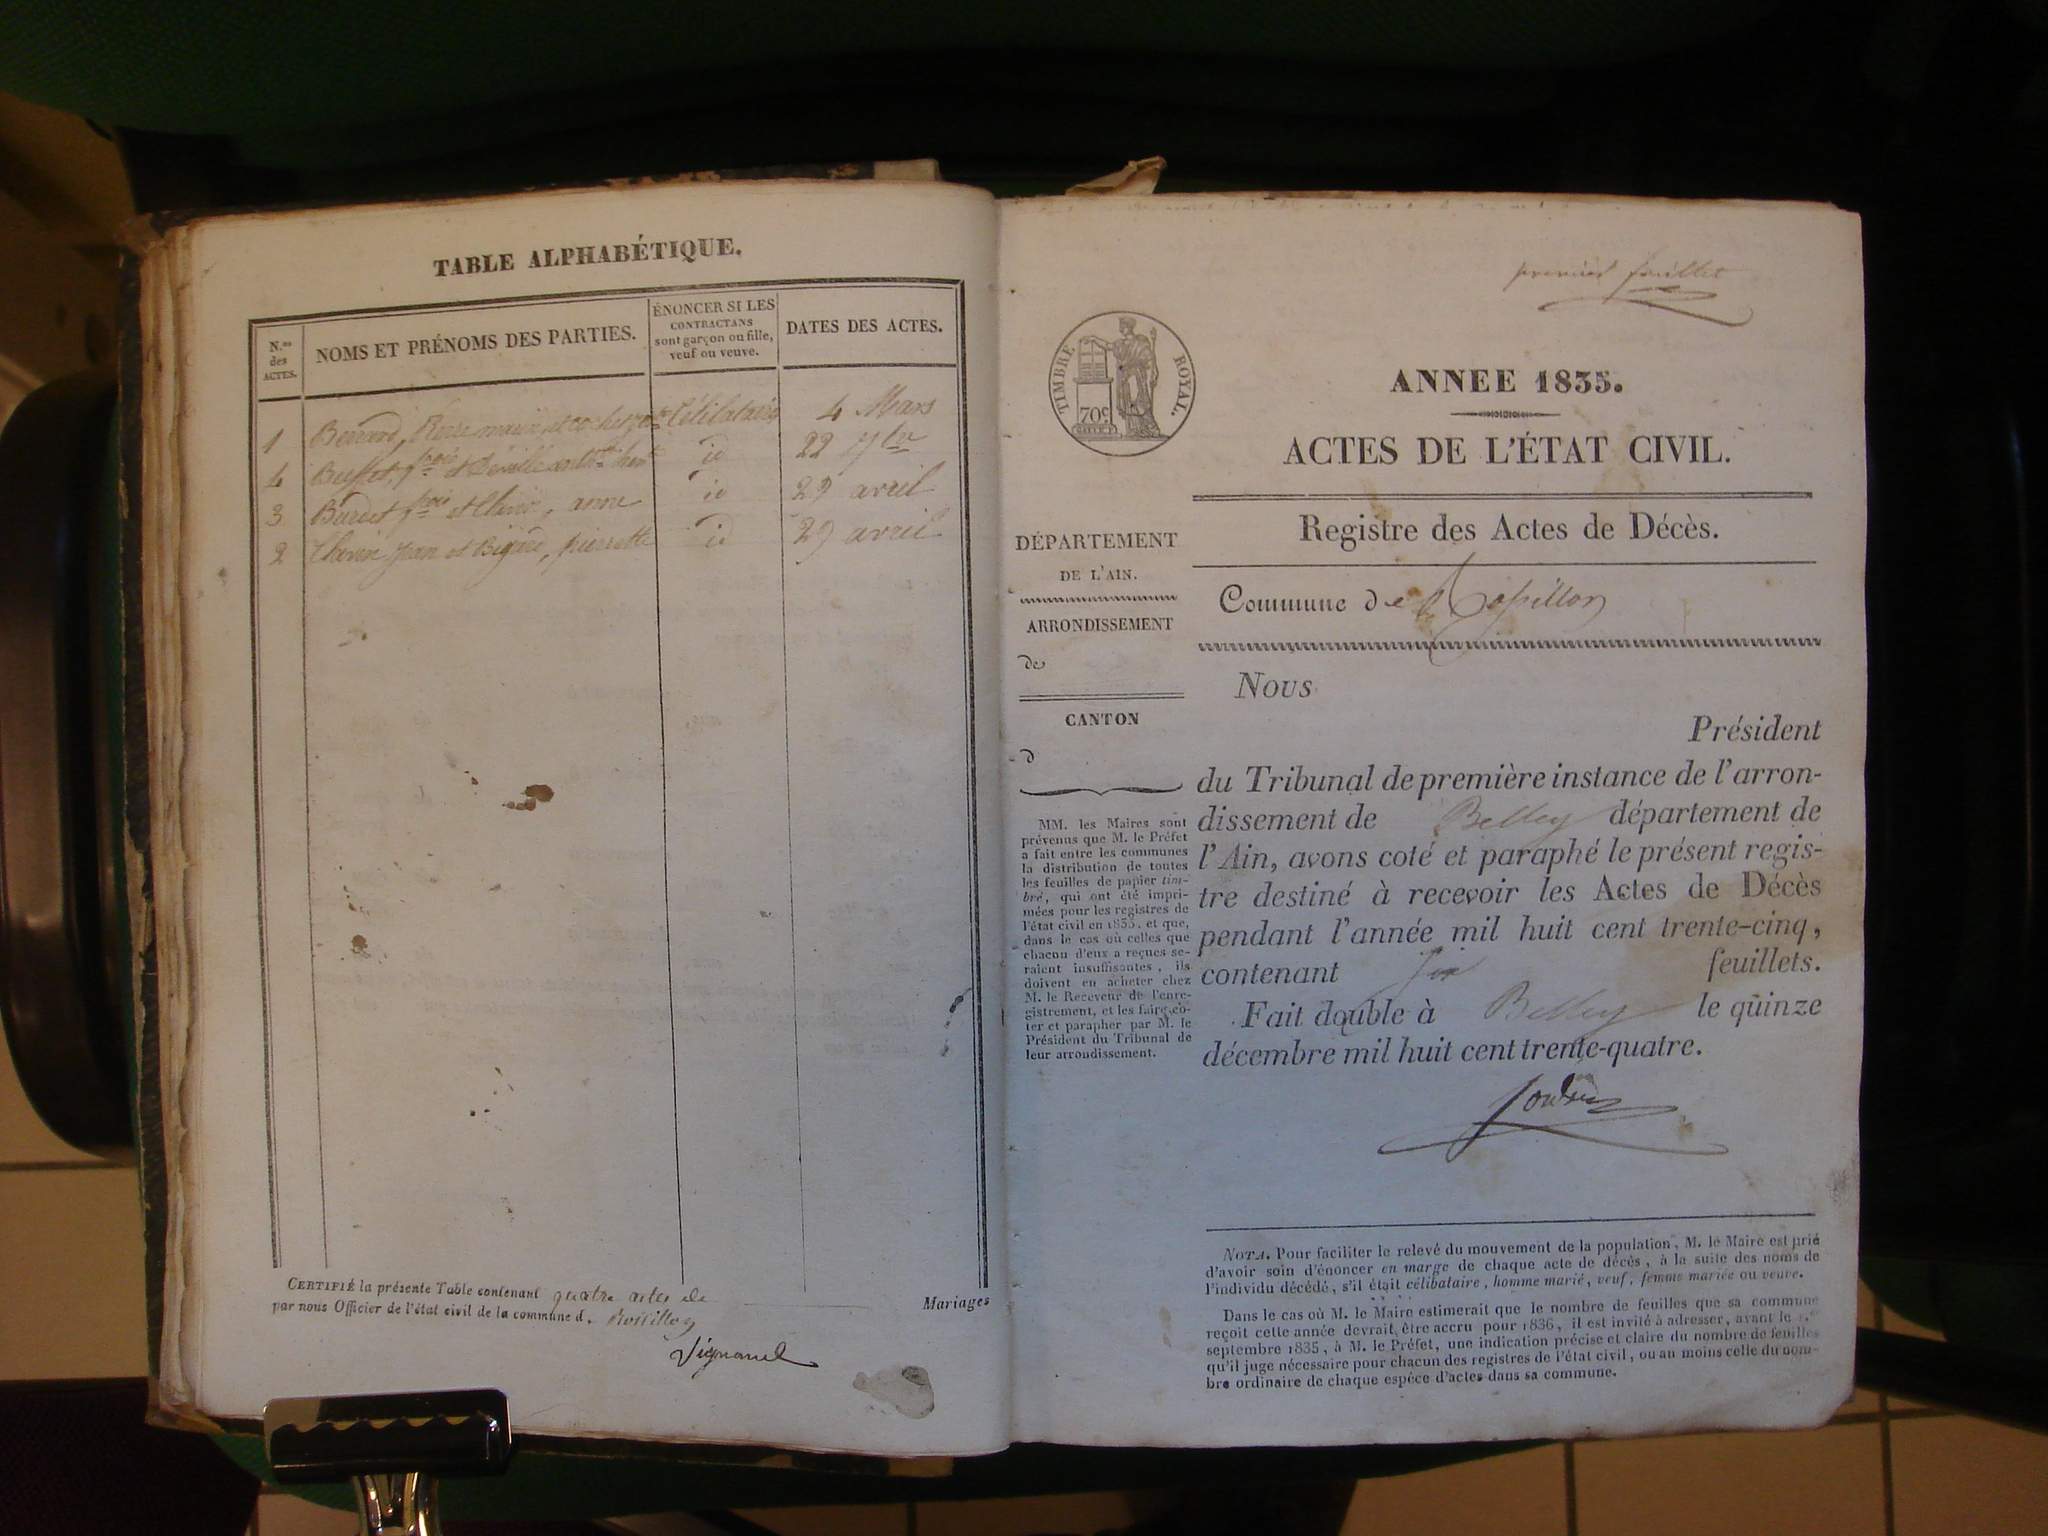 TABLE ALPHABÉTIQUE.
N.os des ACTES.
NOMS ET PRÉNOMS DES PARTIES.
ÉNONCER SI LES
CONTRACTANS
sont garçon ou fille,
veuf ou veuve.
DATES DES ACTES.
1 Bernard, Pierre marie et Célibataire 4 Mars
4 Buffet, fçois et id 22 7bre
3 Burdet fçois et Chevin, anne id 29 avril
2 Chevin Jean et pierrette id 29 avril
CERTIFIÉ la présente Table contenant quatre actes de
Mariages
par nous Officier de l'état civil de la commune d. Rossillon
premier feuillet
TIMBRE ROYAL.
70c
ANNEE 1835.
ACTES DE L'ÉTAT CIVIL.
Registre des Actes de Décès.
Commune de Rossillon
DÉPARTEMENT
DE L'AIN.
ARRONDISSEMENT
de
CANTON
d
MM. les Maires sont
prévenus que M. le Préfet
a fait entre les communes
la distribution de toutes
les feuilles de papier tim-
bré, qui ont été impri-
mées pour les registres de
l'état civil en 1835. et que,
dans le cas où celles que
chacun d'eux a reçues se-
raient insuffisantes, ils
doivent en acheter chez
M. le Receveur de l'enre-
gistrement, et les faire co-
ter et parapher par M. le
Président du Tribunal de
leur arrondissement.
Nous
Président
du Tribunal de première instance de l'arron-
dissement de Belley département de
l'Ain, avons coté et paraphé le présent regis-
tre destiné à recevoir les Actes de Décès
pendant l'année mil huit cent trente-cinq,
contenant six feuillets.
Fait double à Belley le quinze
décembre mil huit cent trente-quatre.
NOTA. Pour faciliter le relevé du mouvement de la population, M. le Maire est prié
d'avoir soin d'énoncer en marge de chaque acte de décès, à la suite des noms de
l'individu décédé, s'il était célibataire, homme marié, veuf, femme mariée ou veuve.
Dans le cas où M. le Maire estimerait que le nombre de feuilles que sa commune
reçoit cette année devrait être accru pour 1836, il est invité à adresser, avant le 1.er
septembre 1835, à M. le Préfet, une indication précise et claire du nombre de feuilles
qu'il juge nécessaire pour chacun des registres de l'état civil, ou au moins celle du nom-
bre ordinaire de chaque espèce d'actes dans sa commune.